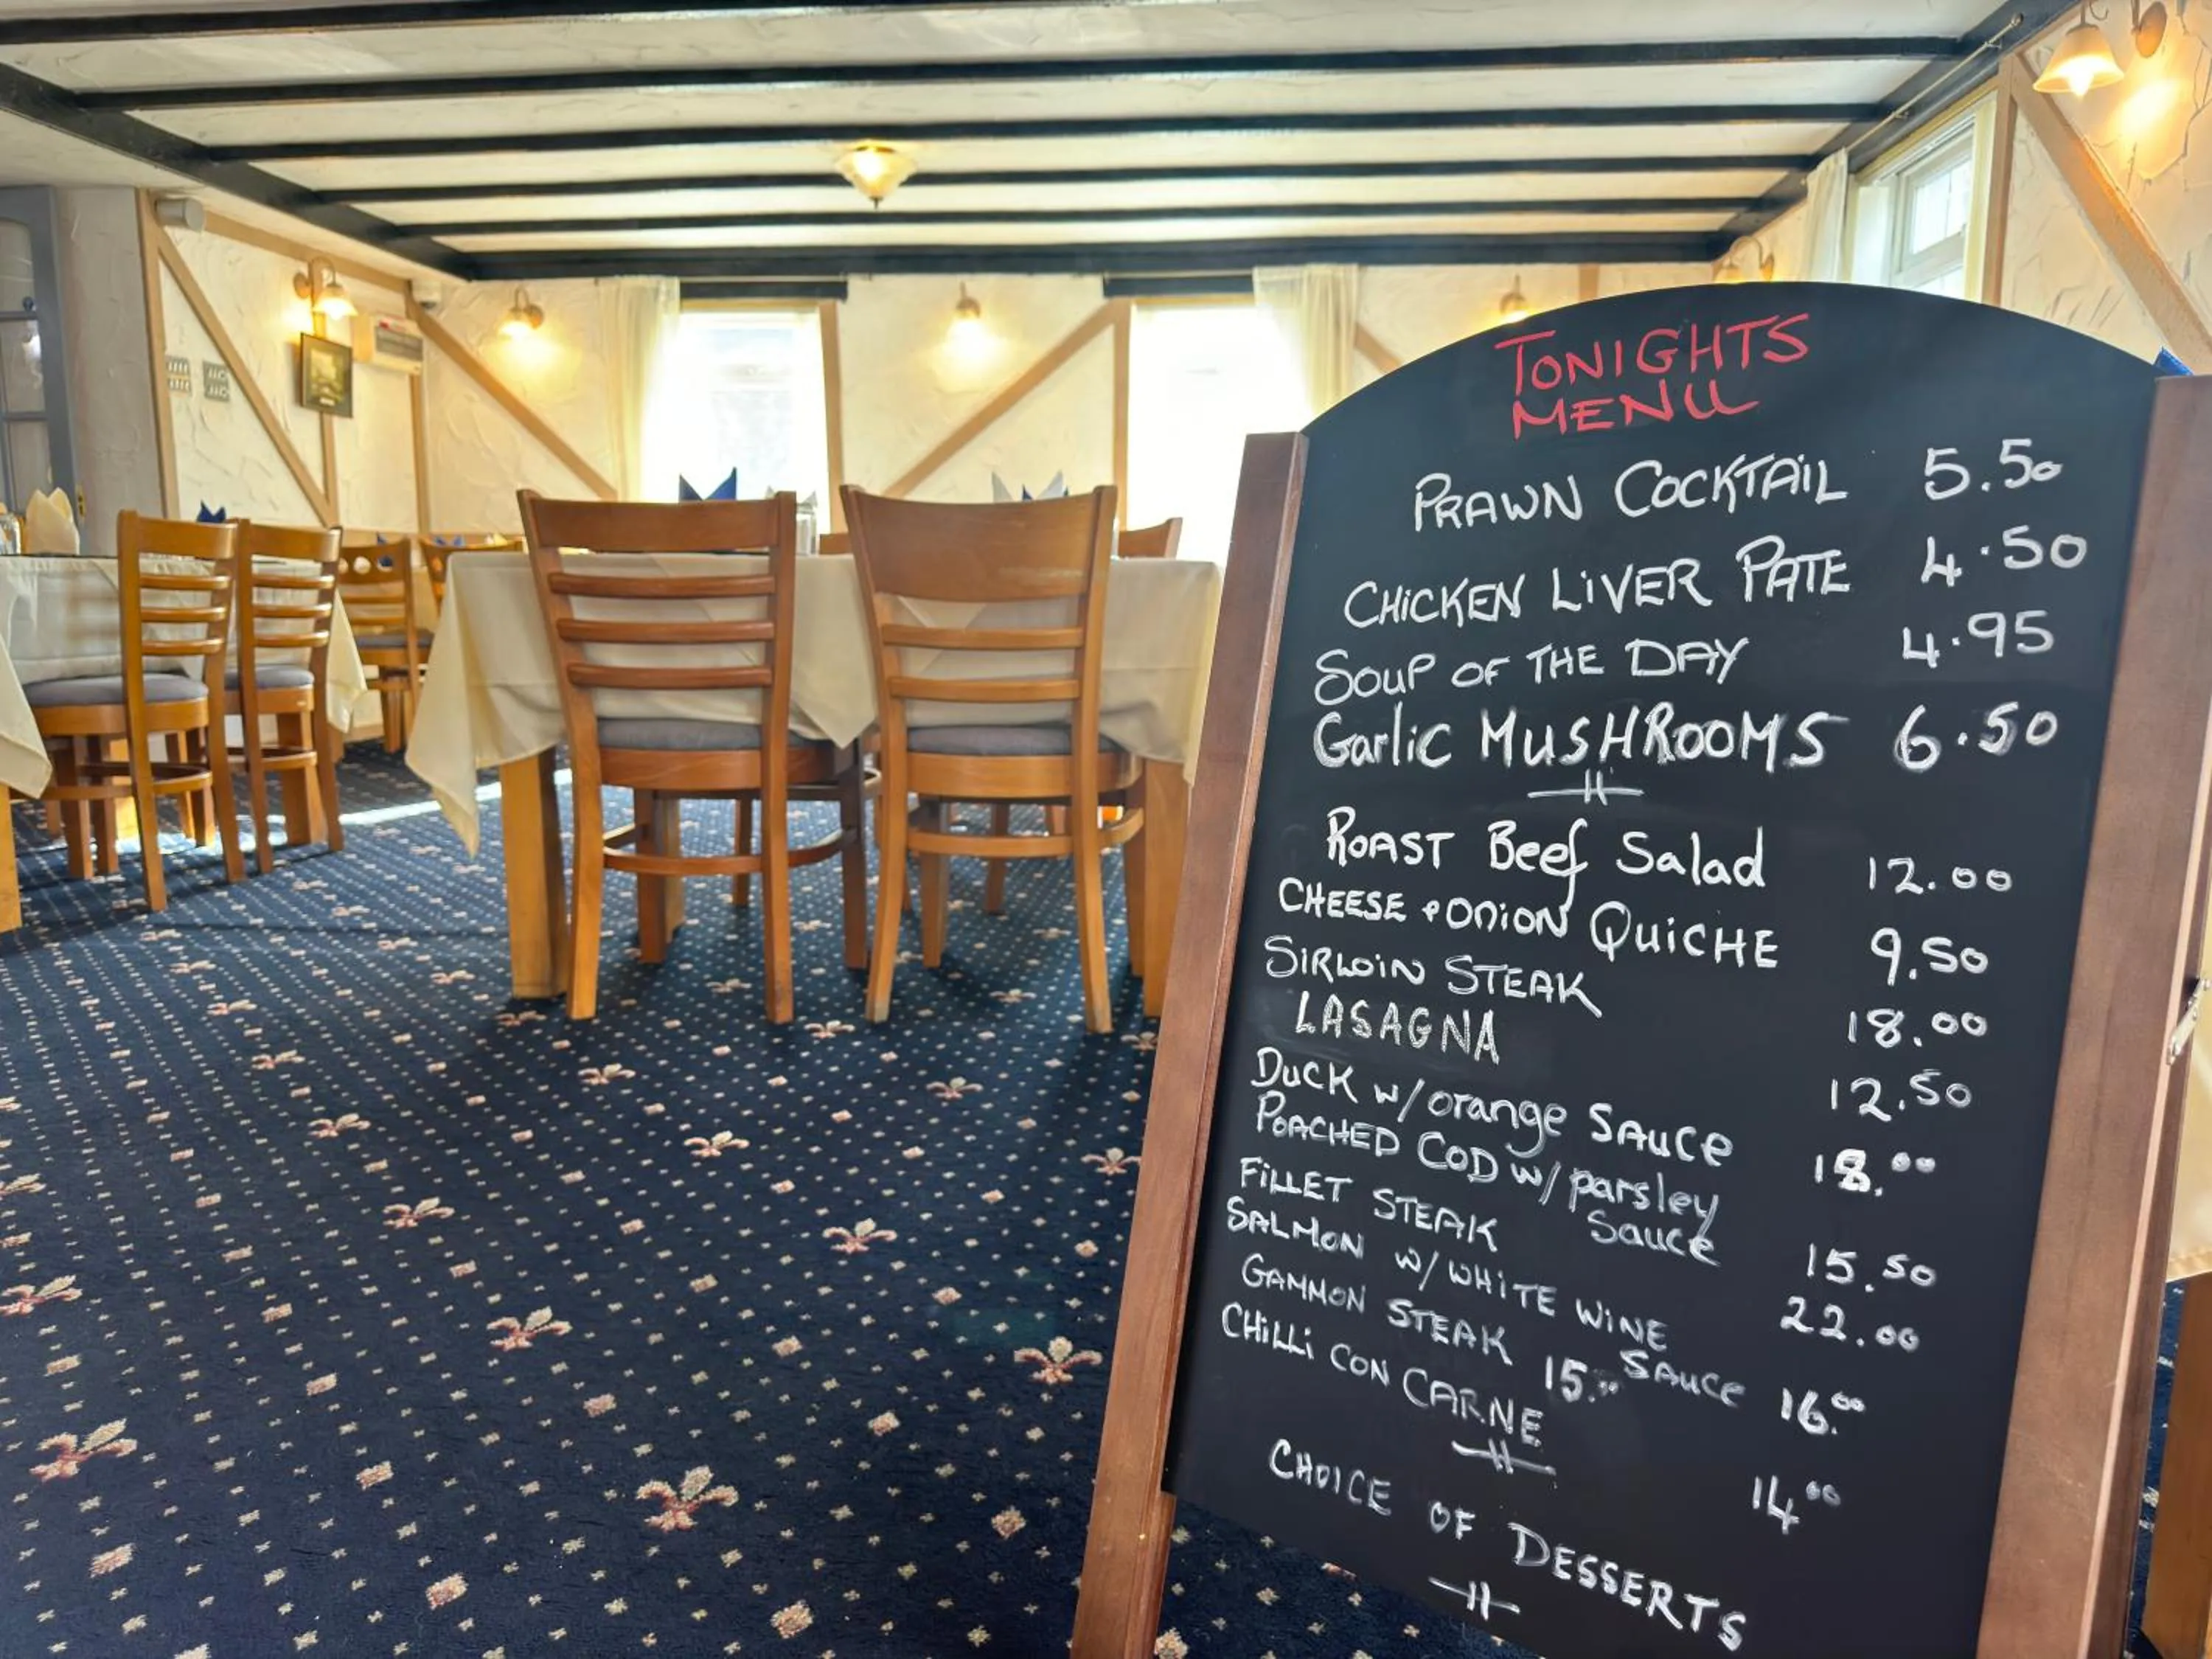 TONIGHTS
MENU
PRAWN COCKTAIL 5.50
CHICKEN LIVER PATE 4.50
SOUP OF THE DAY 4.95
Garlic MUSHROOMS 6.50
ROAST Beef Salad 12.00
CHEESE & ONION QUICHE 9.50
SIRLOIN STEAK 18.00
LASAGNA 12.50
DUCK w/ orange SAUCE 18.00
POACHED COD w/ parsley
Sauce 15.50
FILLET STEAK 22.00
SALMON w/ WHITE WINE
SAUCE 16.00
GAMMON STEAK 15.00
CHILLI CON CARNE 14.00
CHOICE OF DESSERTS